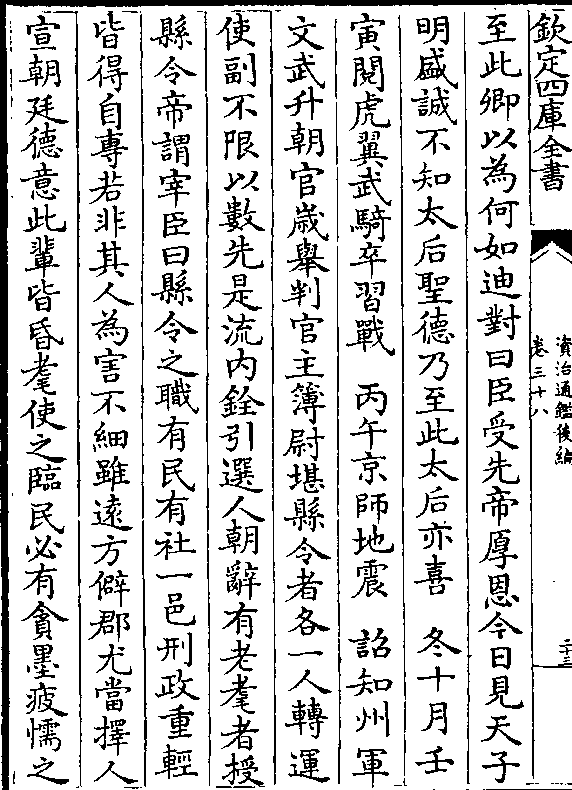 欽定四庫全書
資治通鑑後編
卷三十八
二十三
至此卿以為何如迪對曰臣受先帝厚恩今日見天子
明盛誠不知太后聖德乃至此太后亦喜　冬十月壬
寅閱虎翼武騎卒習戰　丙午京師地震　詔知州軍
文武升朝官歲舉判官主簿尉堪縣令者各一人轉運
使副不限以數先是流內銓引選人朝辭有老耄者授
縣令帝謂宰臣曰縣令之職有民有社一邑刑政重輕
皆得自專若非其人為害不細雖遠方僻郡尤當擇人
宣朝廷德意此輩皆昏耄使之臨民必有貪墨疲懦之